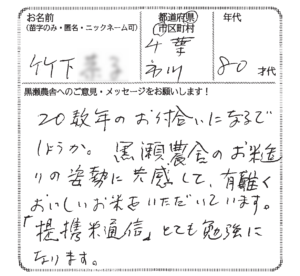 お名前
(苗字のみ・匿名・ニックネーム可)
都道府県
市区町村
年代
竹下
千葉
市川
80才代
黒瀬農舎へのご意見・メッセージをお願いします!
20数年のお付拾いになるで
しょうか。黒瀬農舎のお米造
りの姿勢に共感して、有難く
おいしいお米をいただいています。
「提携米通信」とても勉強に
なります。